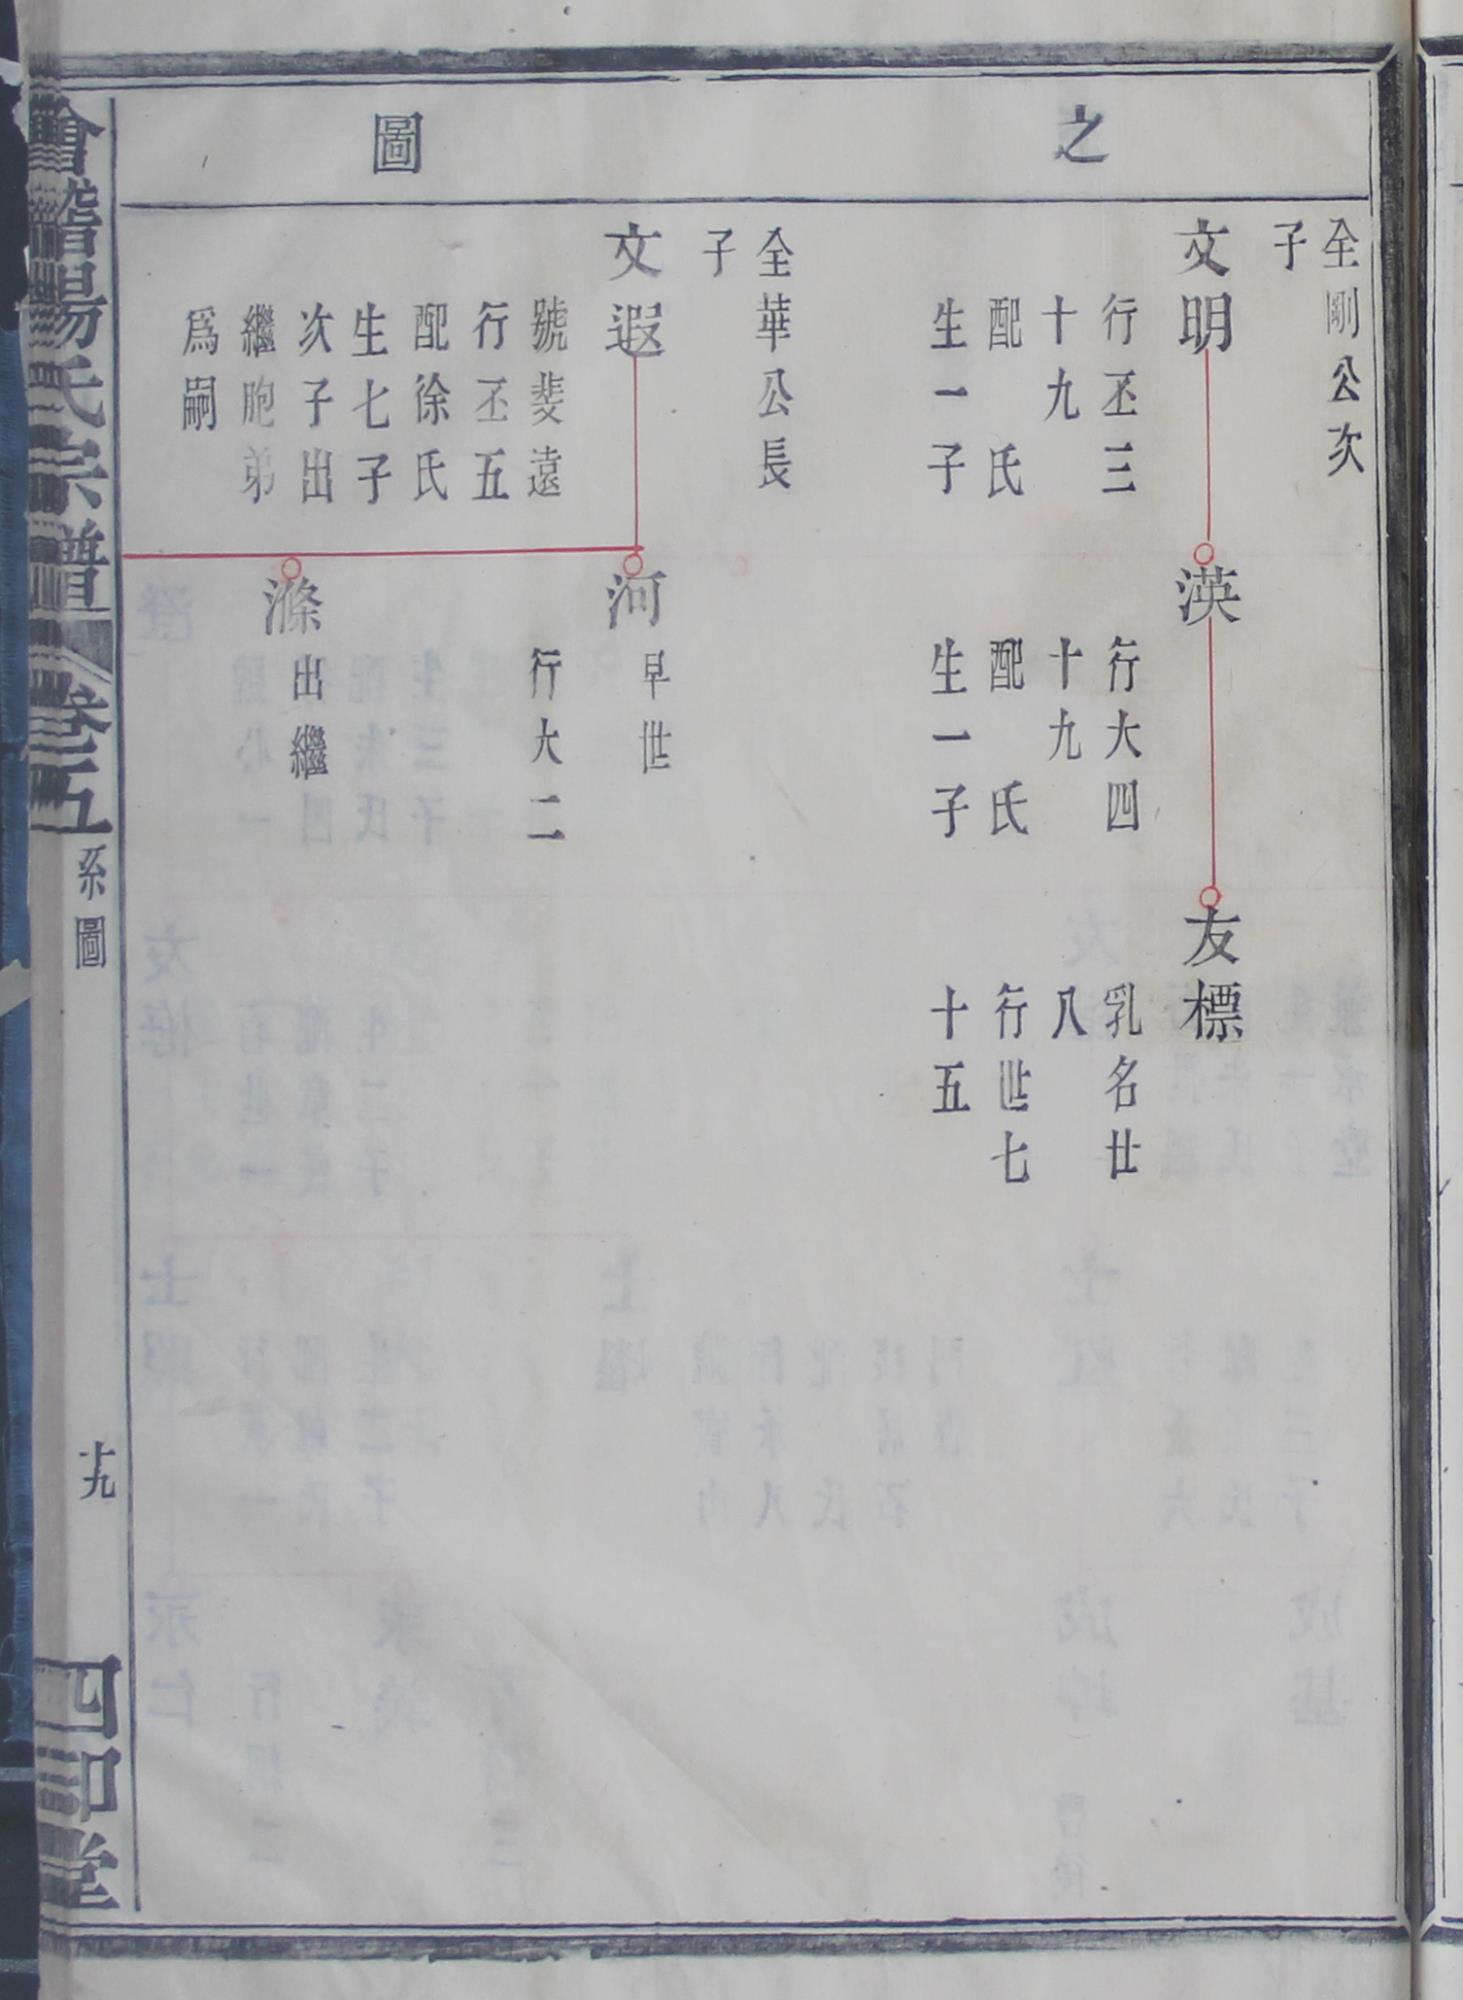 之
圖
全剛公次
子
文明
行丕三
十九
配 氏
生一子
渶
行大四
十九
配 氏
生一子
友標
乳名廿
八
行世七
十五
全華公長
子
文遐
號斐遠
行丕五
配徐氏
生七子
次子出
繼胞弟
爲嗣
河
早世
行大二
滌
出繼
會稽陽氏宗譜
卷五
系圖
十九
四印堂